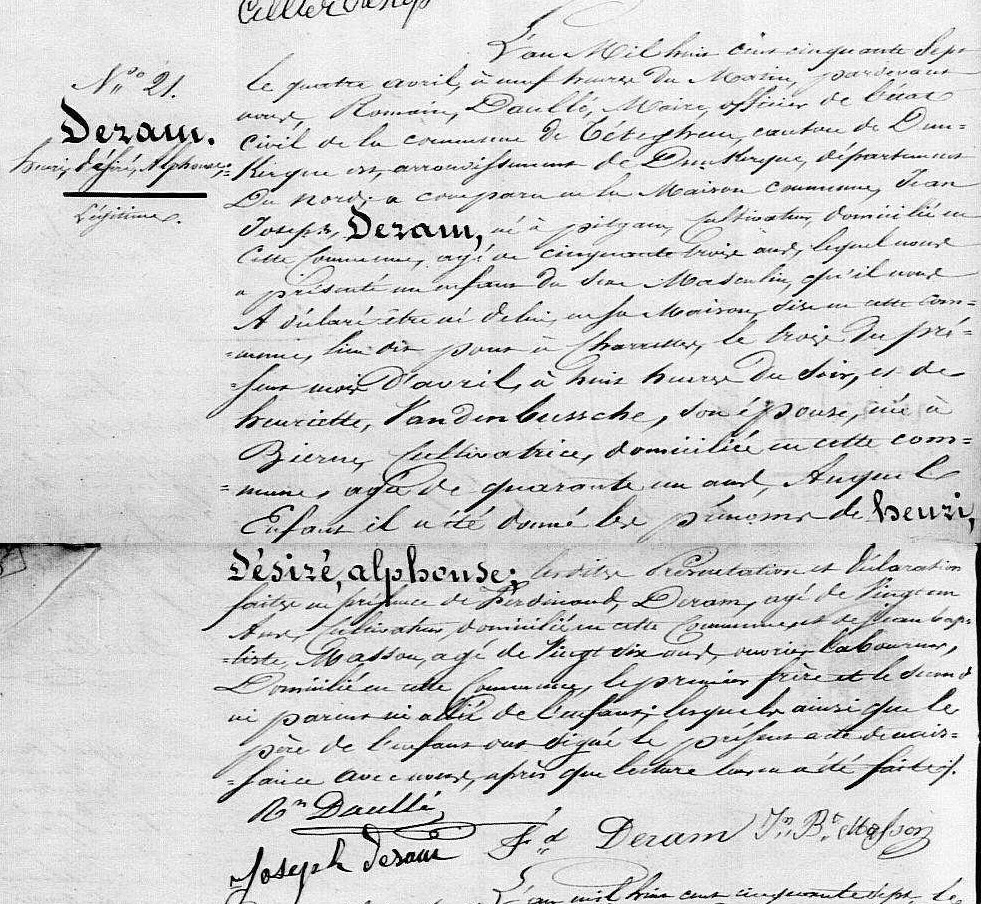 N° 21.
Deram.
henri, désiré, Alphonse,
Légitime.
L'an Mil huit cent cinquante Sept
le quatre avril, à neuf heures du Matin, pardevant
nous, Romain, Daullé, Maire, officier de l'état
civil de la commune de Téteghem, canton de Dun=
kerque est, arrondissement de Dunkerque, département
Du nord; a comparu en la Maison commune, Jean
Joseph, Deram, né à pitgam, Cultivateur, domicilié en
Cette Commune, agé de cinquante trois ans, lequel nous
a présenté un enfant du sexe Masculin, qu'il nous
A déclaré être né de lui, en sa Maison, sise en cette com=
=mune, lieu dit pont à Charrettes, le trois du pré=
=sent mois D'avril, à huit heures du Soir, et de
henriette, Vandenbussche, son épouse, née à
Bierne, Cultivatrice, domiciliée en cette com=
=mune, agée de quarante un ans, Auquel
Enfant il a été donné les prénoms de henri,
Désiré, alphonse; lesdites Présentation et Déclaration
faites en présence de Ferdinand, Deram, agé de Vingt un
Ans, Cultivateur, domicilié en cette Commune et de Jean bap=
=tiste, Masson, agé de Vingt six ans, ouvrier laboureur,
Domicilié en cette Commune, le premier frère et le second
ni parent ni allié de l'enfant; lesquels ainsi que le
père de l'enfant ont signé le présent acte de nais=
=sance avec nous, après que lecture leur en a été faite.
Rn Daullé
Joseph deram
Fd Deram
Jn Bte Masson
L'an mil huit cent cinquante sept, le